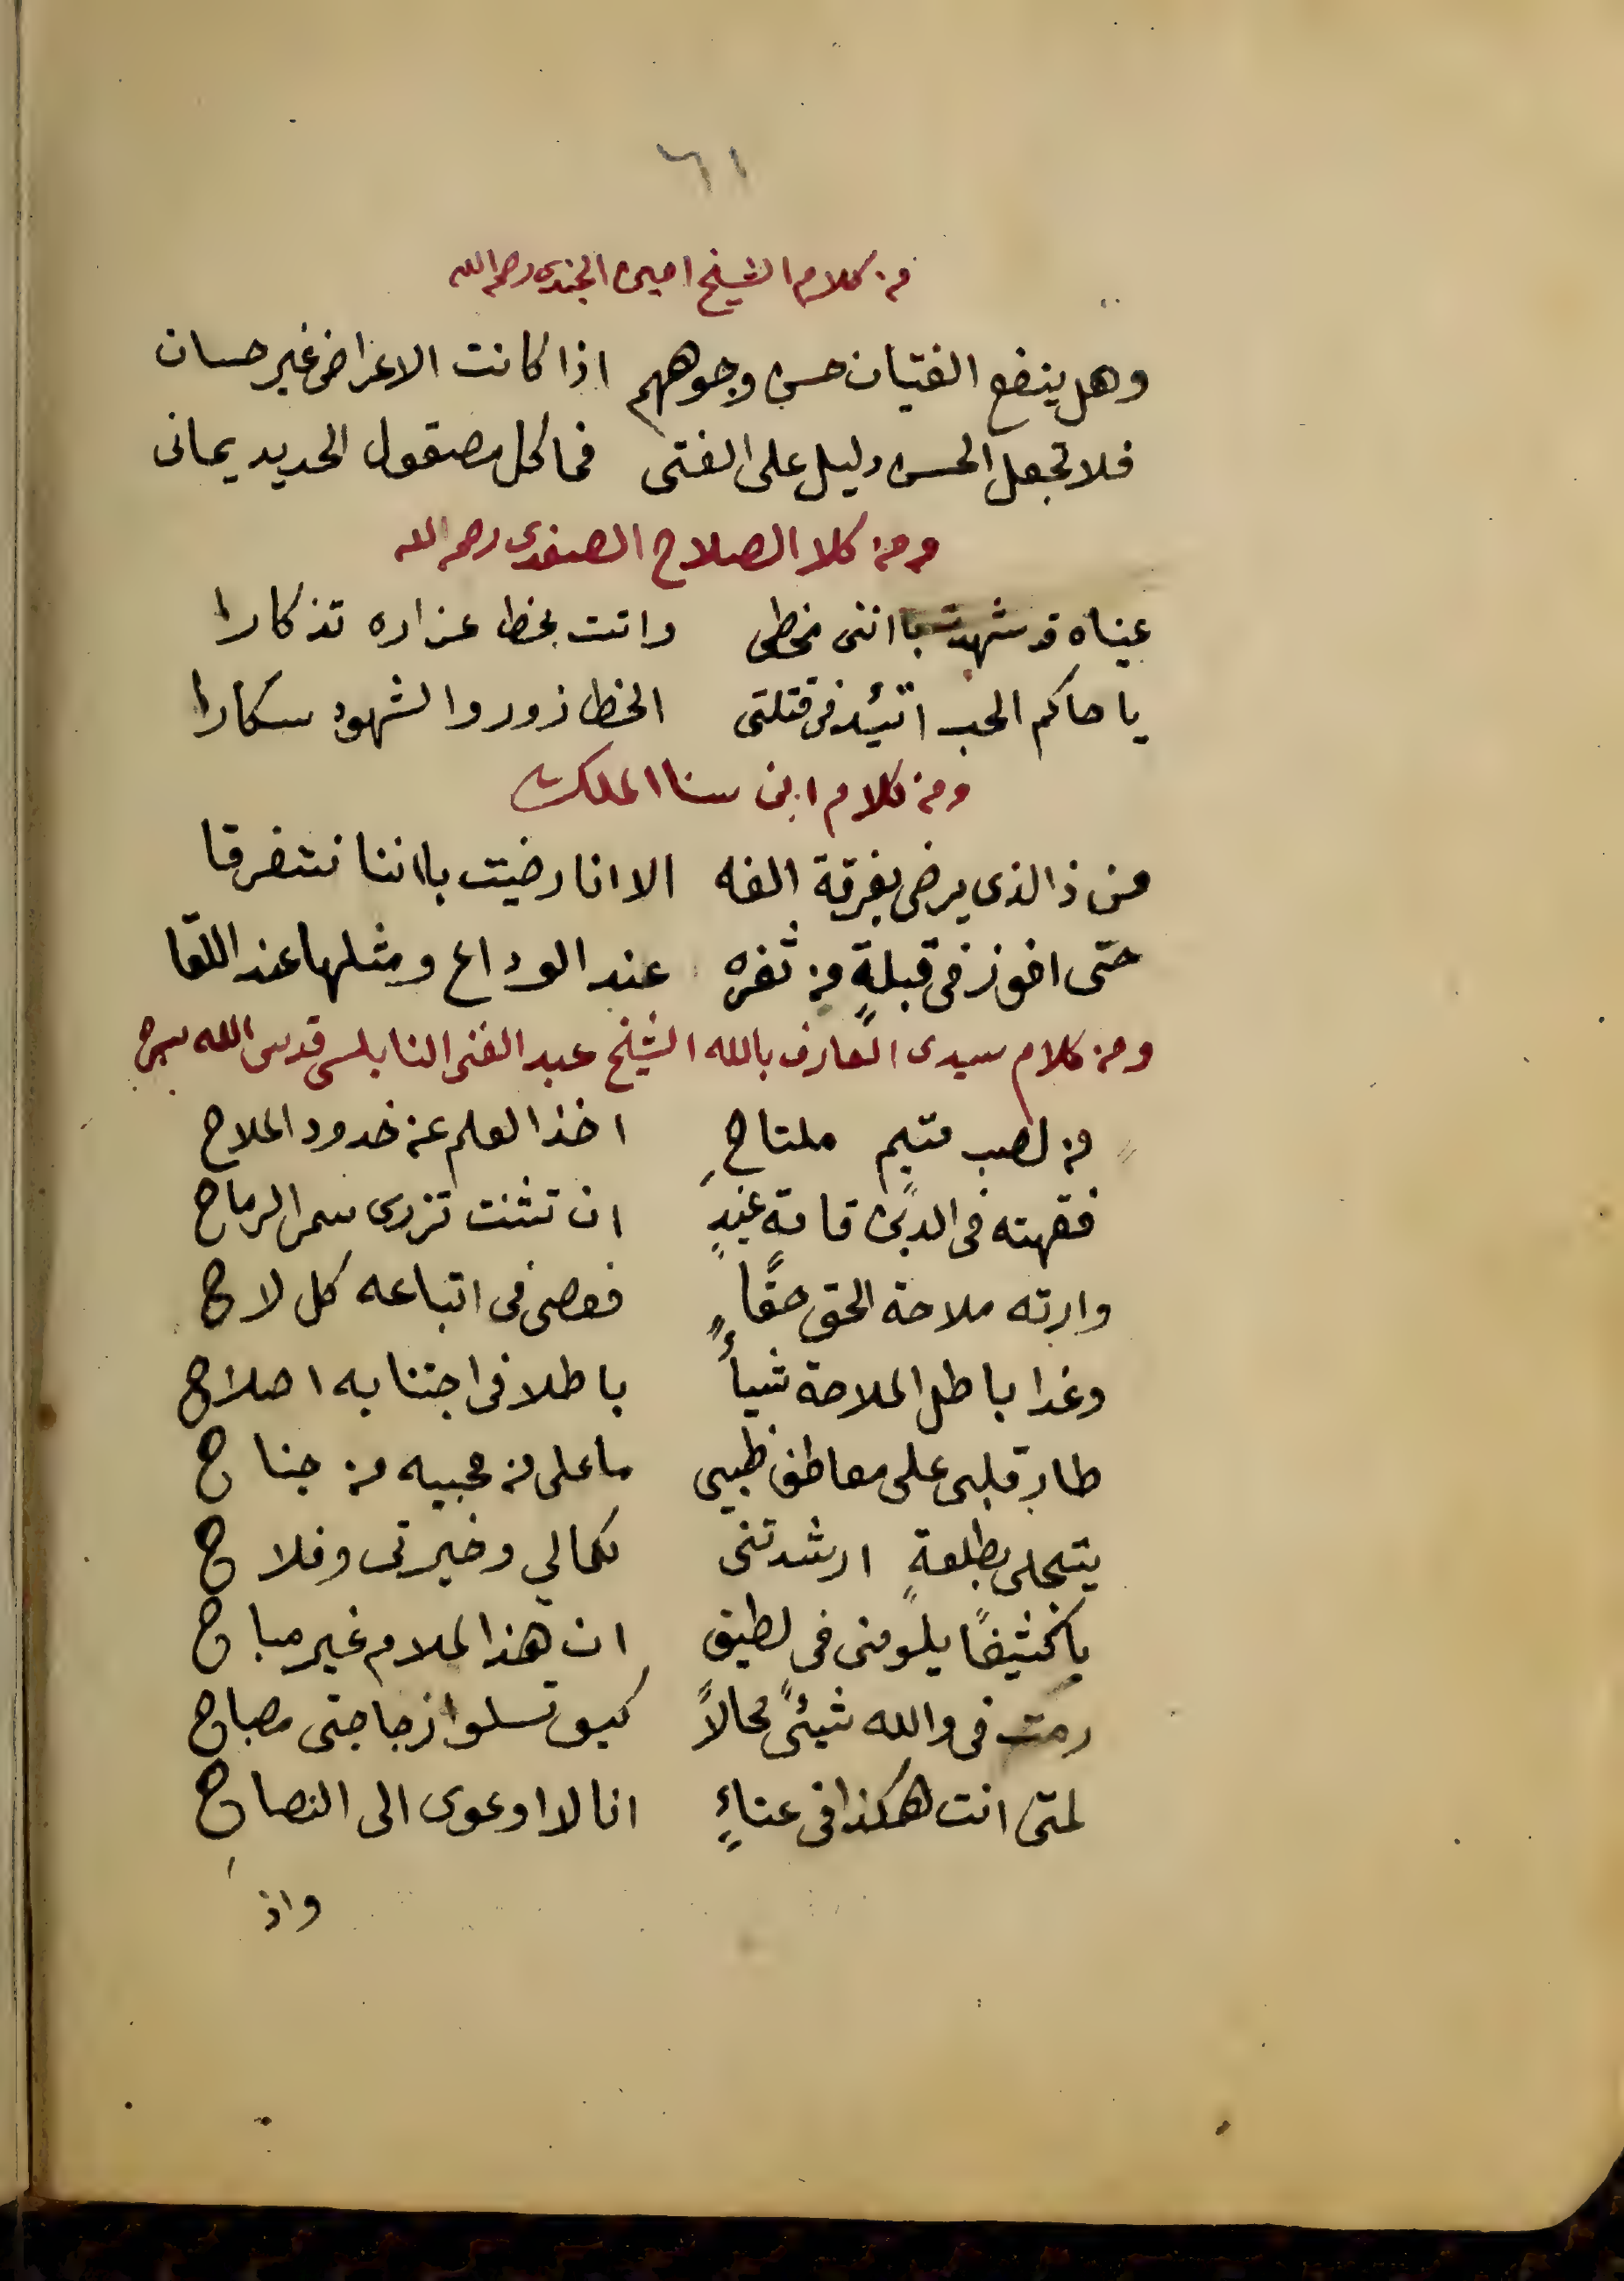 ٦١
من كلام الشيخ امين الجندى رحمه الله
وهل ينفع الفتيان حسن وجوههم اذا كانت الاعراض غير حسان
فلا تجعل الحسن دليل على الفتى فما كل مصقول الحديد يمانى
ومن كلا الصلاح الصفدى رحمه الله
عيناه قد شهدت باننى مخطى واتت بخط عذاره تذكارا
يا حاكم الحب اتئد فى قتلتى الخط زور والشهود سكارا
ومن كلام ابن سنا الملك
من ذا الذى يرضى بفرقة الفه الا انا رضيت باننا نتفرقا
حتى افوز فى قبلةٍ من ثغره عند الوداع ومثلها عند اللقا
ومن كلام سيدى العارف بالله الشيخ عبد الغنى النابلسى قدس الله سره
من لصب متيم ملتاحِ اخذ العلم عن خدود الملاح
فقهته فى الدين قامة غيدٍ ان تثنت تزرى سمر الرماح
وارته ملاحة الحق حقاً فعصى فى اتباعه كل لاح
وغدا باطل الملاحة شيأً باطلا فى اجتنابه اصلاح
طار قلبى على معاطف ظبيى ما على من محبيه من جناح
يتجلى بطلعةٍ ارشدتنى لكمالي وخيرتى وفلاح
ياكثيفاً يلومنى فى لطيف ان هذا الملام غير مباح
رمت فى والله شيئً محالاً كيف تسلوا زجاجتى مصباح
لمتى انت هكذا فى عناءٍ انا لا ادعوى الى النصاح
واذ